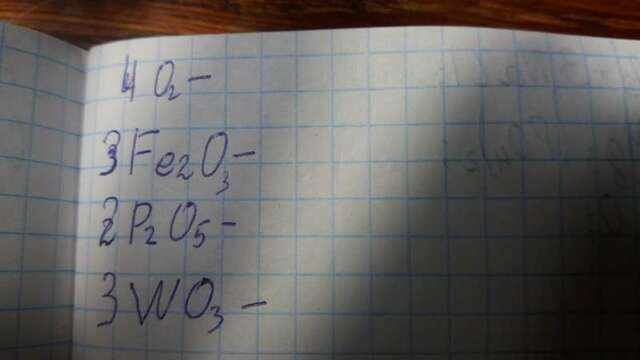 4O₂ –
3Fe₂O₃ –
2P₂O₅ –
3WO₃ –